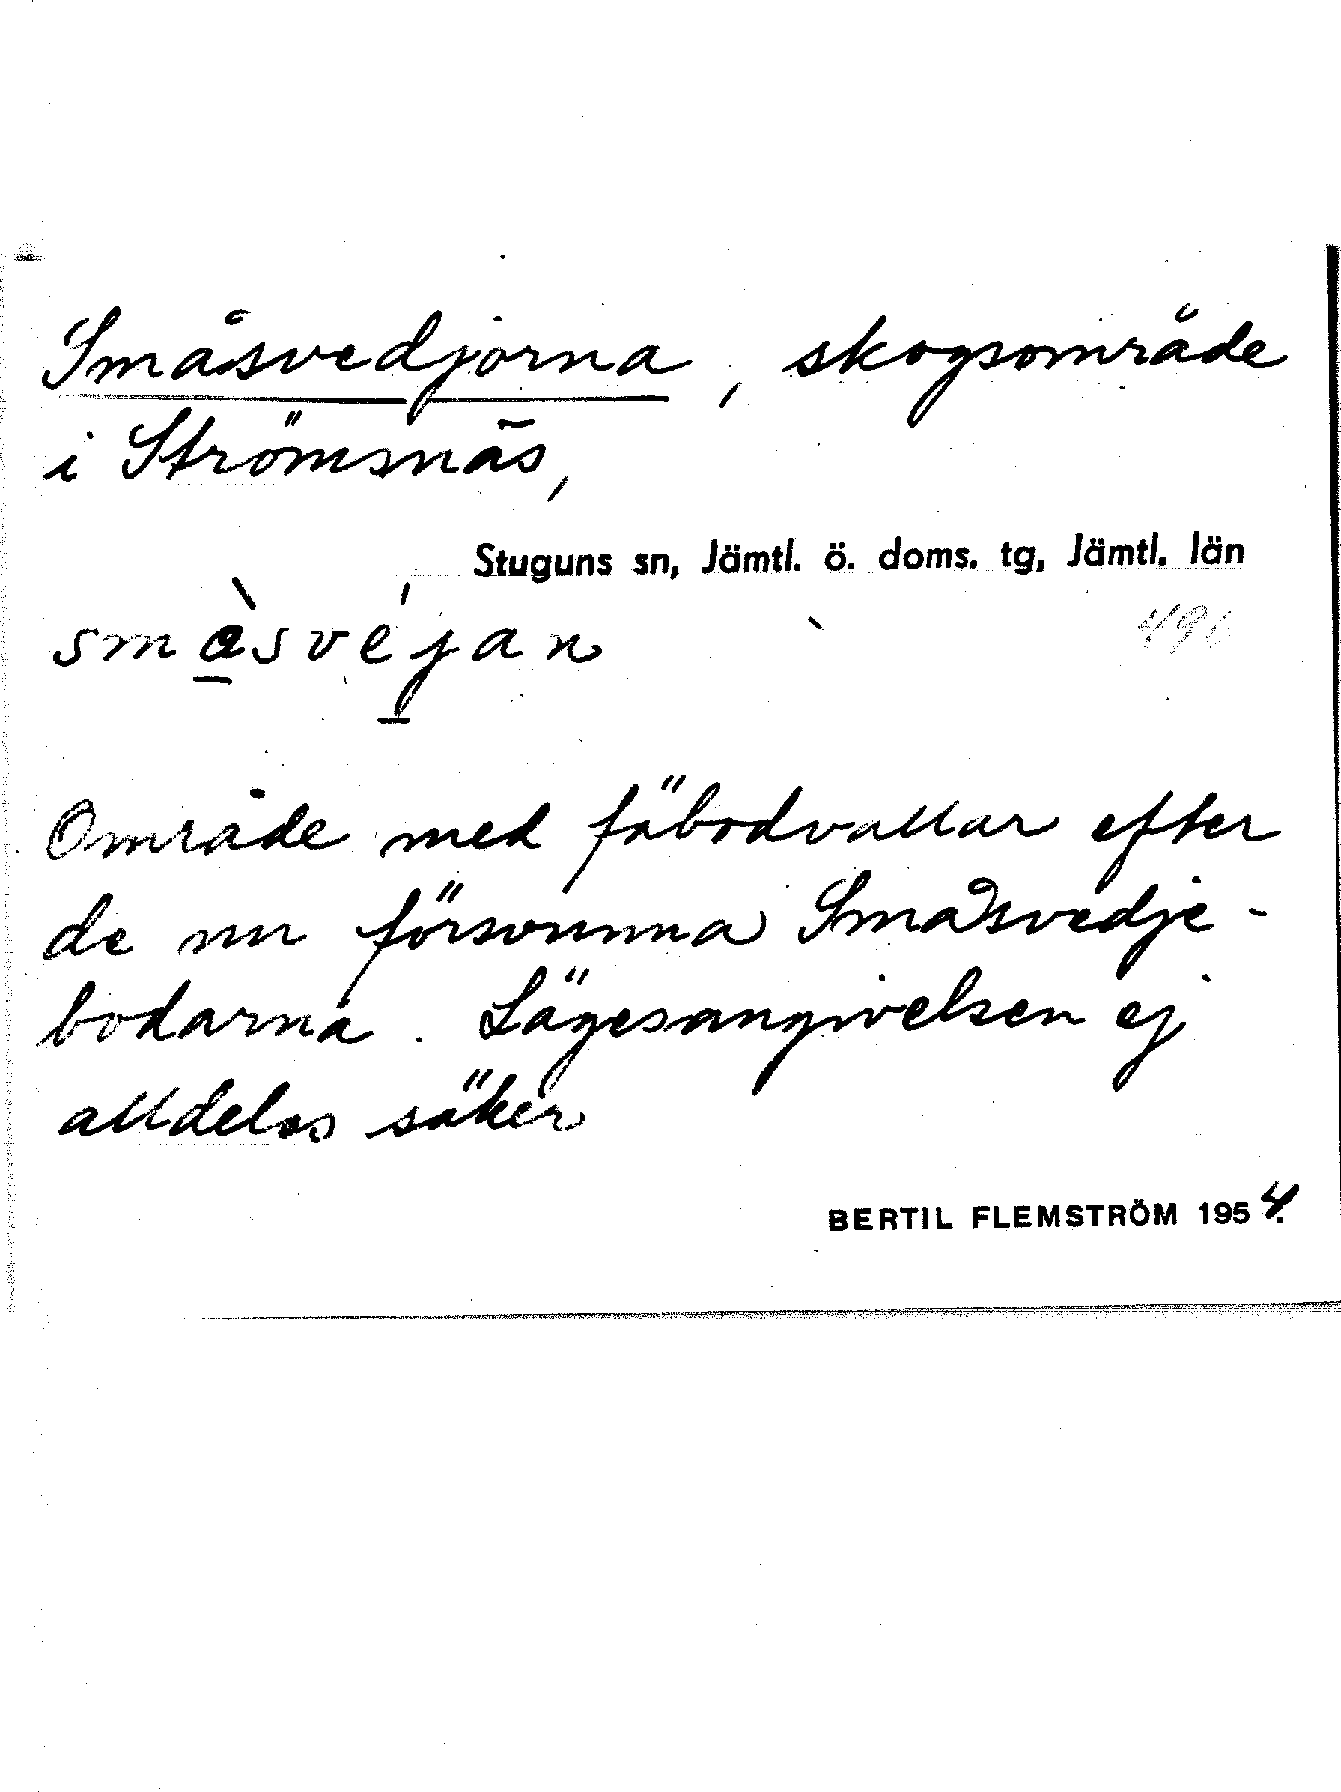 Småsvedjorna, skogsområde
i Strömsnäs,
Stuguns sn, Jämtl. ö. doms. tg, Jämtl. län
småsvejan
Område med fäbodvallar efter
de nu försvunna Småsvedje-
bodarna. Lägesangivelsen ej
alldeles säker
BERTIL FLEMSTRÖM 1954.